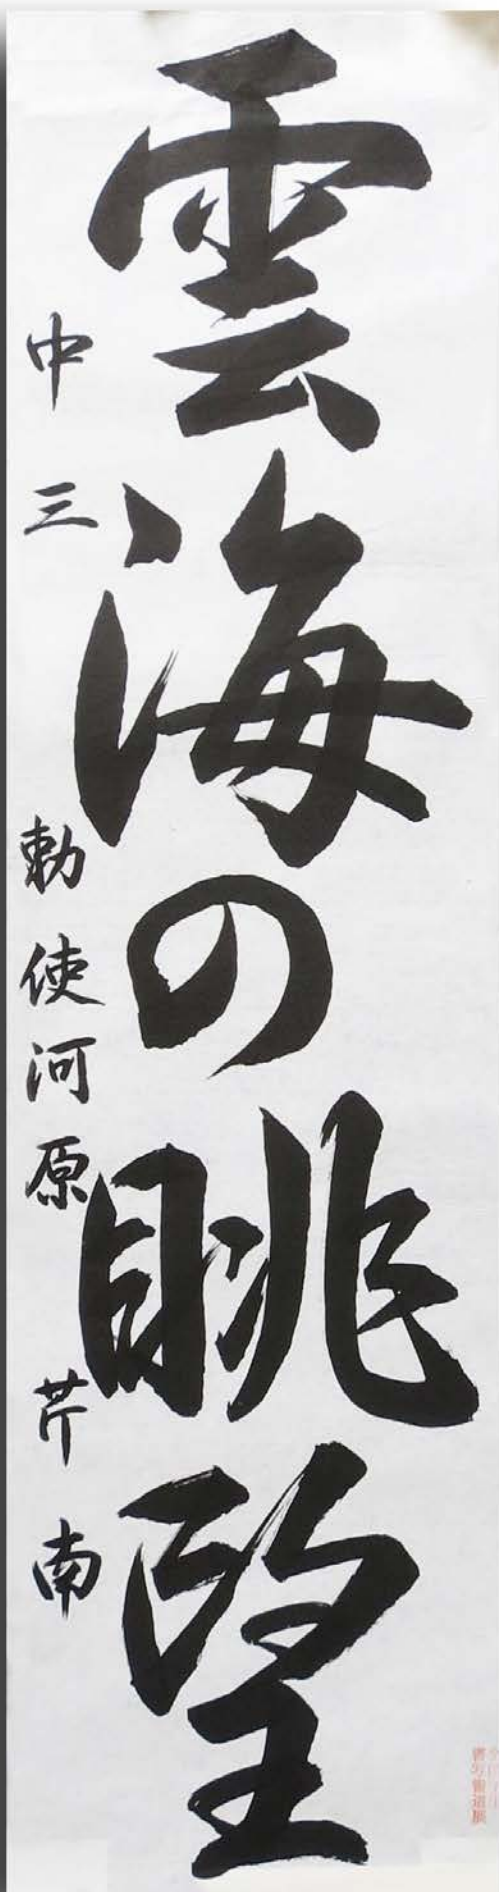 雲海の眺望
中三 勅使河原 芹南